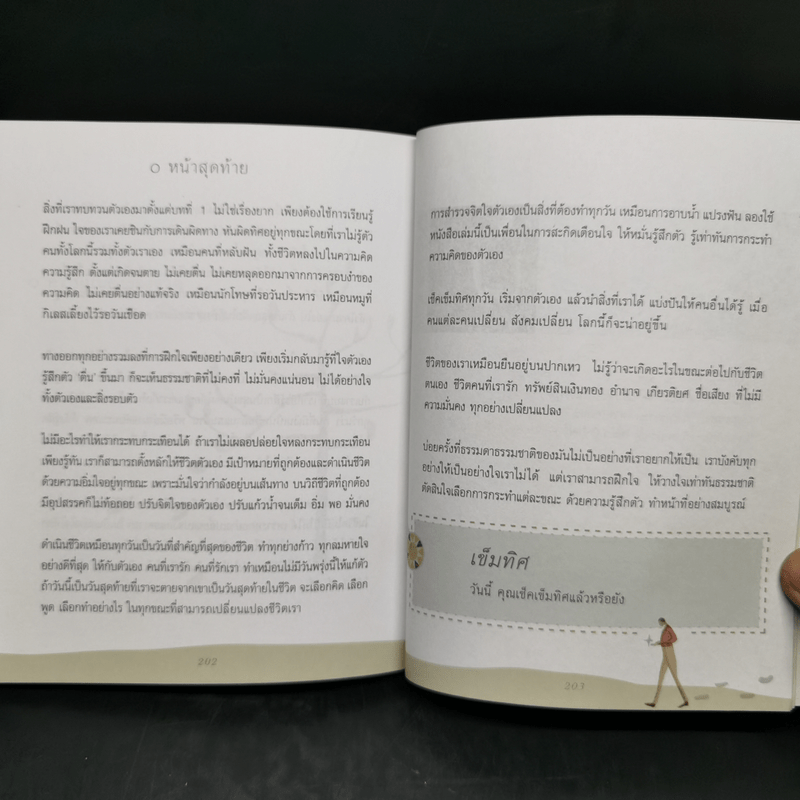 ๐ หน้าสุดท้าย
สิ่งที่เราทบทวนตัวเองมาตั้งแต่บทที่ 1 ไม่ใช่เรื่องยาก เพียงต้องใช้การเรียนรู้
ฝึกฝน ใจของเราเคยชินกับการเดินผิดทาง หันผิดทิศอยู่ทุกขณะโดยที่เราไม่รู้ตัว
คนทั้งโลกนี้รวมทั้งตัวเราเอง เหมือนคนที่หลับฝัน ทั้งชีวิตหลงไปในความคิด
ความรู้สึก ตั้งแต่เกิดจนตาย ไม่เคยตื่น ไม่เคยหลุดออกมาจากการครอบงำของ
ความคิด ไม่เคยตื่นอย่างแท้จริง เหมือนนักโทษที่รอวันประหาร เหมือนหมูที่
กิเลสเลี้ยงไว้รอวันเชือด
ทางออกทุกอย่างรวมลงที่การฝึกใจเพียงอย่างเดียว เพียงเริ่มกลับมารู้ที่ใจตัวเอง
รู้สึกตัว 'ตื่น' ขึ้นมา ก็จะเห็นธรรมชาติที่ไม่คงที่ ไม่มั่นคงแน่นอน ไม่ได้อย่างใจ
ทั้งตัวเองและสิ่งรอบตัว
ไม่มีอะไรทำให้เรากระทบกระเทือนได้ ถ้าเราไม่เผลอปล่อยใจให้หลงกระทบกระเทือน
เพียงรู้ทัน เราก็สามารถตั้งหลักให้ชีวิตตัวเอง มีเป้าหมายที่ถูกต้องและดำเนินชีวิต
ด้วยความอิ่มใจอยู่ทุกขณะ เพราะมั่นใจว่ากำลังอยู่บนเส้นทาง บนวิถีชีวิตที่ถูกต้อง
มีอุปสรรคก็ไม่ท้อถอย ปรับจิตใจของตัวเอง ปรับแก้วน้ำจนเต็ม อิ่ม พอ มั่นคง
ดำเนินชีวิตเหมือนทุกวันเป็นวันที่สำคัญที่สุดของชีวิต ทำทุกย่างก้าว ทุกลมหายใจ
อย่างดีที่สุด ให้กับตัวเอง คนที่เรารัก คนที่รักเรา ทำเหมือนไม่มีวันพรุ่งนี้ให้แก้ตัว
ถ้าวันนี้เป็นวันสุดท้ายที่เราจะตายจากเขาเป็นวันสุดท้ายในชีวิต จะเลือกคิด เลือก
พูด เลือกทำอย่างไร ในทุกขณะที่สามารถเปลี่ยนแปลงชีวิตเรา
202
การสำรวจจิตใจตัวเองเป็นสิ่งที่ต้องทำทุกวัน เหมือนการอาบน้ำ แปรงฟัน ลองใช้
หนังสือเล่มนี้เป็นเพื่อนในการสะกิดเตือนใจ ให้หมั่นรู้สึกตัว รู้เท่าทันการกระทำ
ความคิดของตัวเอง
เช็คเข็มทิศทุกวัน เริ่มจากตัวเอง แล้วนำสิ่งที่เราได้ แบ่งปันให้คนอื่นได้รู้ เมื่อ
คนแต่ละคนเปลี่ยน สังคมเปลี่ยน โลกนี้ก็จะน่าอยู่ขึ้น
ชีวิตของเราเหมือนยืนอยู่บนปากเหว ไม่รู้ว่าจะเกิดอะไรในขณะต่อไปกับชีวิต
ตนเอง ชีวิตคนที่เรารัก ทรัพย์สินเงินทอง อำนาจ เกียรติยศ ชื่อเสียง ที่ไม่มี
ความมั่นคง ทุกอย่างเปลี่ยนแปลง
บ่อยครั้งที่ธรรมดาธรรมชาติของมันไม่เป็นอย่างที่เราอยากให้เป็น เราบังคับทุก
อย่างให้เป็นอย่างใจเราไม่ได้ แต่เราสามารถฝึกใจ ให้วางใจเท่าทันธรรมชาติ
ตัดสินใจเลือกการกระทำแต่ละขณะ ด้วยความรู้สึกตัว ทำหน้าที่อย่างสมบูรณ์
เข็มทิศ
วันนี้ คุณเช็คเข็มทิศแล้วหรือยัง
203